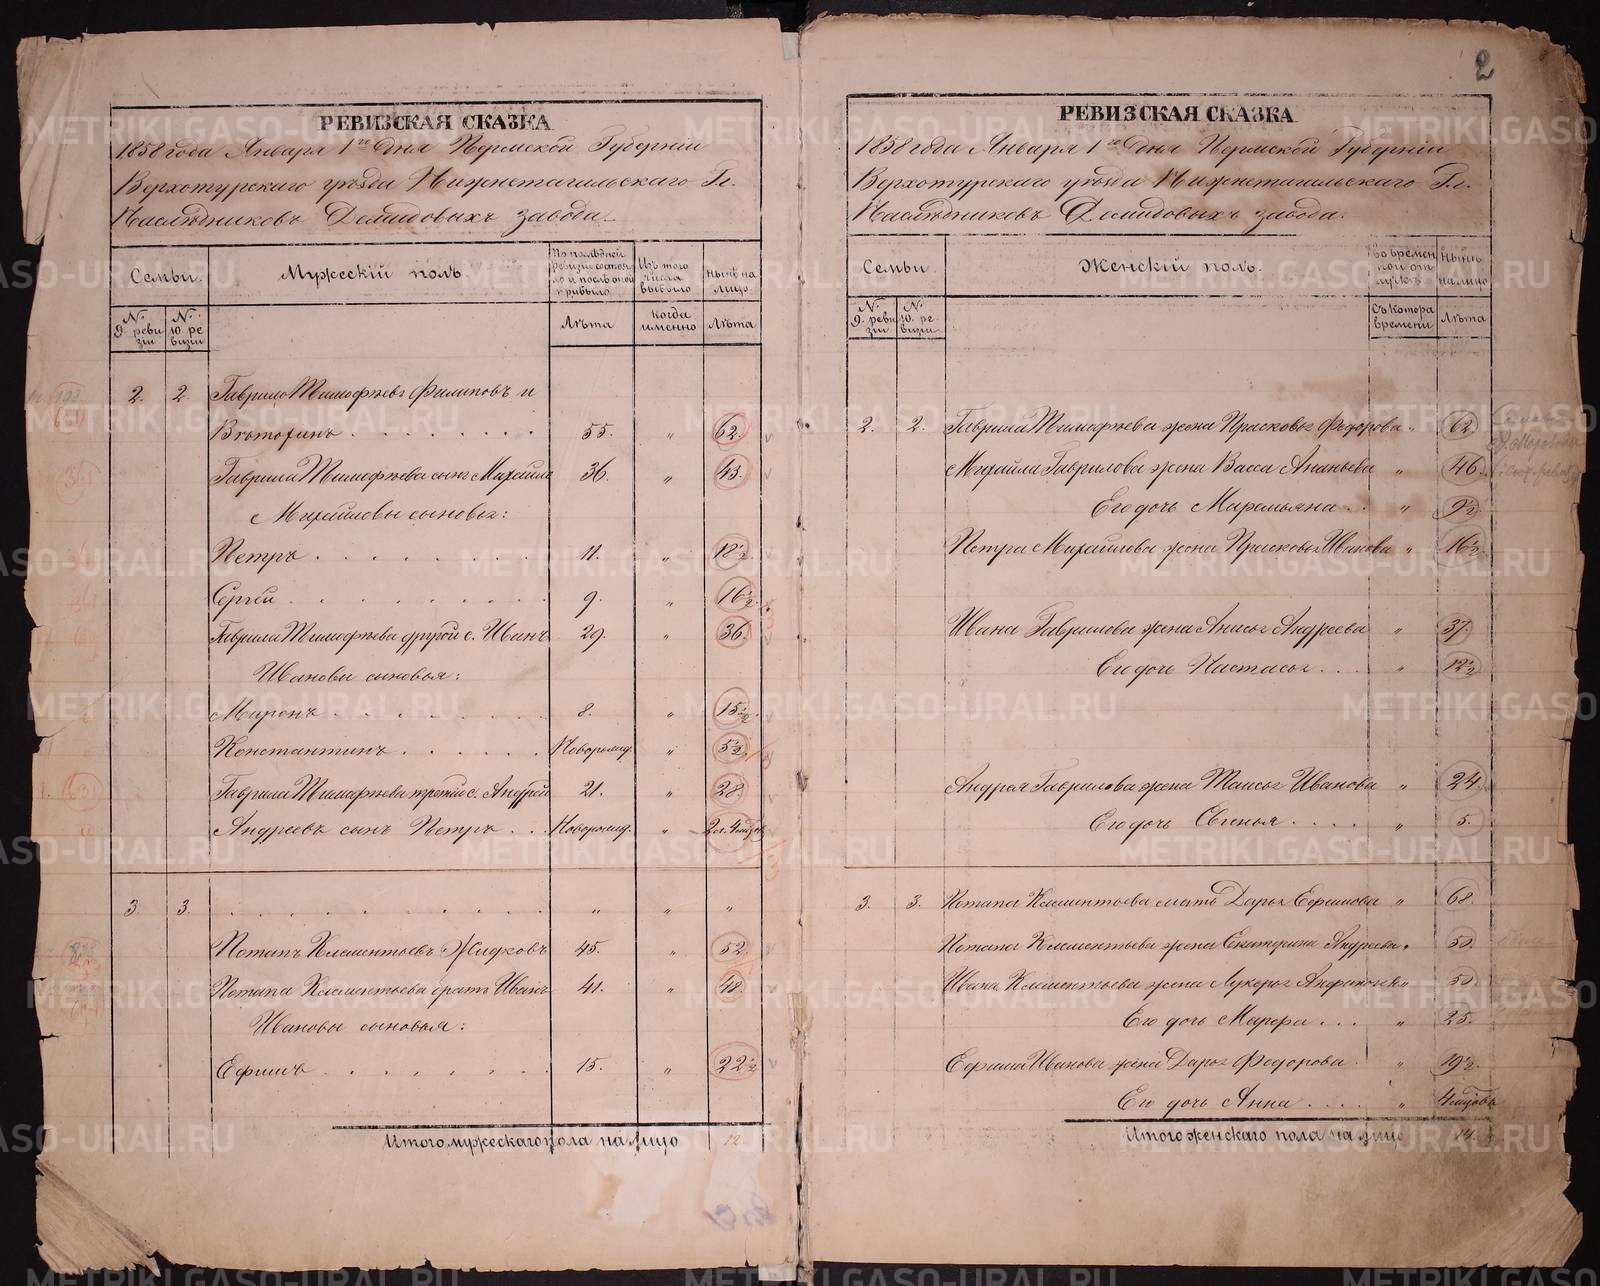 2
РЕВИЗСКАЯ СКАЗКА
1858 года Января 1го дня Пермской Губерніи
Верхотурскаго уѣзда Нижнетагильскаго Гг.
Наслѣдниковъ Демидовыхъ завода.
Семьи.
Мужескій полъ.
По послѣдней ревизіи состояло и послѣ оной прибыло
Изъ того числа выбыло
Нынѣ на лицо
№ 9. ревизіи
№ 10. ревизіи
Лѣта
когда именно
Лѣта
2. 2 Гаврило Тимофѣевъ Филиповъ и
Вт. . . . . . . . 55. " 62.
Гаврила Тимофѣева сынъ Михайла 36. " 43.
Михайловы сыновья:
Петръ . . . . . . . . 11. " 18½
Сергѣй . . . . . . . . 9. " 16½
Гаврила Тимофѣева другой с. Иванъ 29. " 36.
Ивановы сыновья:
Миронъ . . . . . . . 8. " 15½
Константинъ . . . . . . Новорожд. " 5½
Гаврила Тимофѣева третій с. Андрей 21. " 28.
Андреевъ сынъ Петръ . . . Новорожд. " 2 г. 4 мѣсяц.
3 3. . . . . . . . . . . . " " "
Потапъ Клементьевъ Жидковъ 45. " 52.
Потапа Клементьева братъ Иванъ 41. " 48.
Ивановы сыновья:
Ефимъ . . . . . . . . 15. " 22½
Итого мужескаго пола на лицо 12
РЕВИЗСКАЯ СКАЗКА
1858 года Января 1го дня Пермской Губерніи
Верхотурскаго уѣзда Нижнетагильскаго Гг.
Наслѣдниковъ Демидовыхъ завода.
Семьи.
Женскій полъ.
Во временной отлучкѣ
Нынѣ на лицо
№ 9. ревизіи
№ 10. ревизіи
Съ котора времени
Лѣта
2. 2. Гаврила Тимофѣева жена Прасковья Федорова " 62
Михайла Гаврилова жена Васса Ананьева " 46.
Его дочь Маремьяна . . " 9½
Петра Михайлова жена Прасковья Иванова " 16½
Ивана Гаврилова жена Анисья Андреева " 37.
Его дочь Настасья . . . " 12½
Андрея Гаврилова жена Таисья Иванова " 24
Его дочь Евгенья . . . . " 5.
3. 3. Потапа Клементьева мать Дарья Ефимова " 68
Потапа Клементьева жена Екатерина Андреева " 50.
Ивана Клементьева жена Лукерья Анфиногена " 50
Его дочь Марфа . . . " 25.
Ефима Иванова жена Дарья Федорова . " 19½
Его дочь Анна . . . . " 4 мѣсяцовъ
Итого женскаго пола на лицо 14.
METRIKI.GASO-URAL.RU